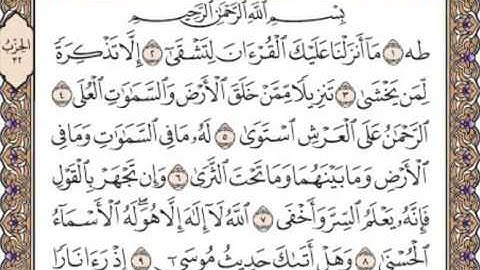 بِسْمِ ٱللَّهِ ٱلرَّحْمَٰنِ ٱلرَّحِيمِ
طه ١ مَآ أَنزَلْنَا عَلَيْكَ ٱلْقُرْءَانَ لِتَشْقَىٰٓ ٢ إِلَّا تَذْكِرَةً
لِّمَن يَخْشَىٰ ٣ تَنزِيلًا مِّمَّنْ خَلَقَ ٱلْأَرْضَ وَٱلسَّمَٰوَٰتِ ٱلْعُلَى ٤
ٱلرَّحْمَٰنُ عَلَى ٱلْعَرْشِ ٱسْتَوَىٰ ٥ لَهُۥ مَا فِى ٱلسَّمَٰوَٰتِ وَمَا فِى
ٱلْأَرْضِ وَمَا بَيْنَهُمَا وَمَا تَحْتَ ٱلثَّرَىٰ ٦ وَإِن تَجْهَرْ بِٱلْقَوْلِ
فَإِنَّهُۥ يَعْلَمُ ٱلسِّرَّ وَأَخْفَى ٧ ٱللَّهُ لَآ إِلَٰهَ إِلَّا هُوَ ۖ لَهُ ٱلْأَسْمَآءُ
ٱلْحُسْنَىٰ ٨ وَهَلْ أَتَىٰكَ حَدِيثُ مُوسَىٰٓ ٩ إِذْ رَءَا نَارًا
الحزب
٣٢